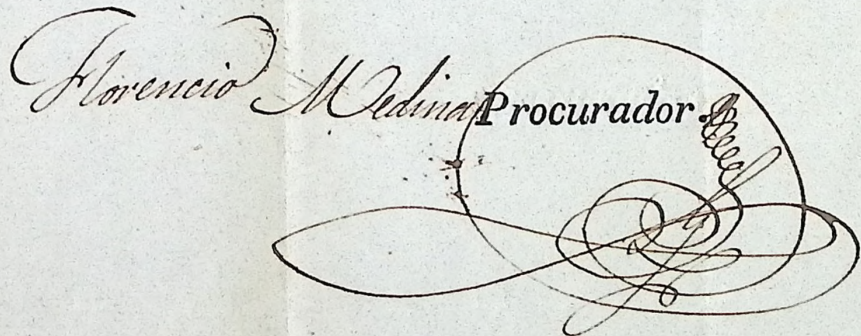 Florencio Medina Procurador.